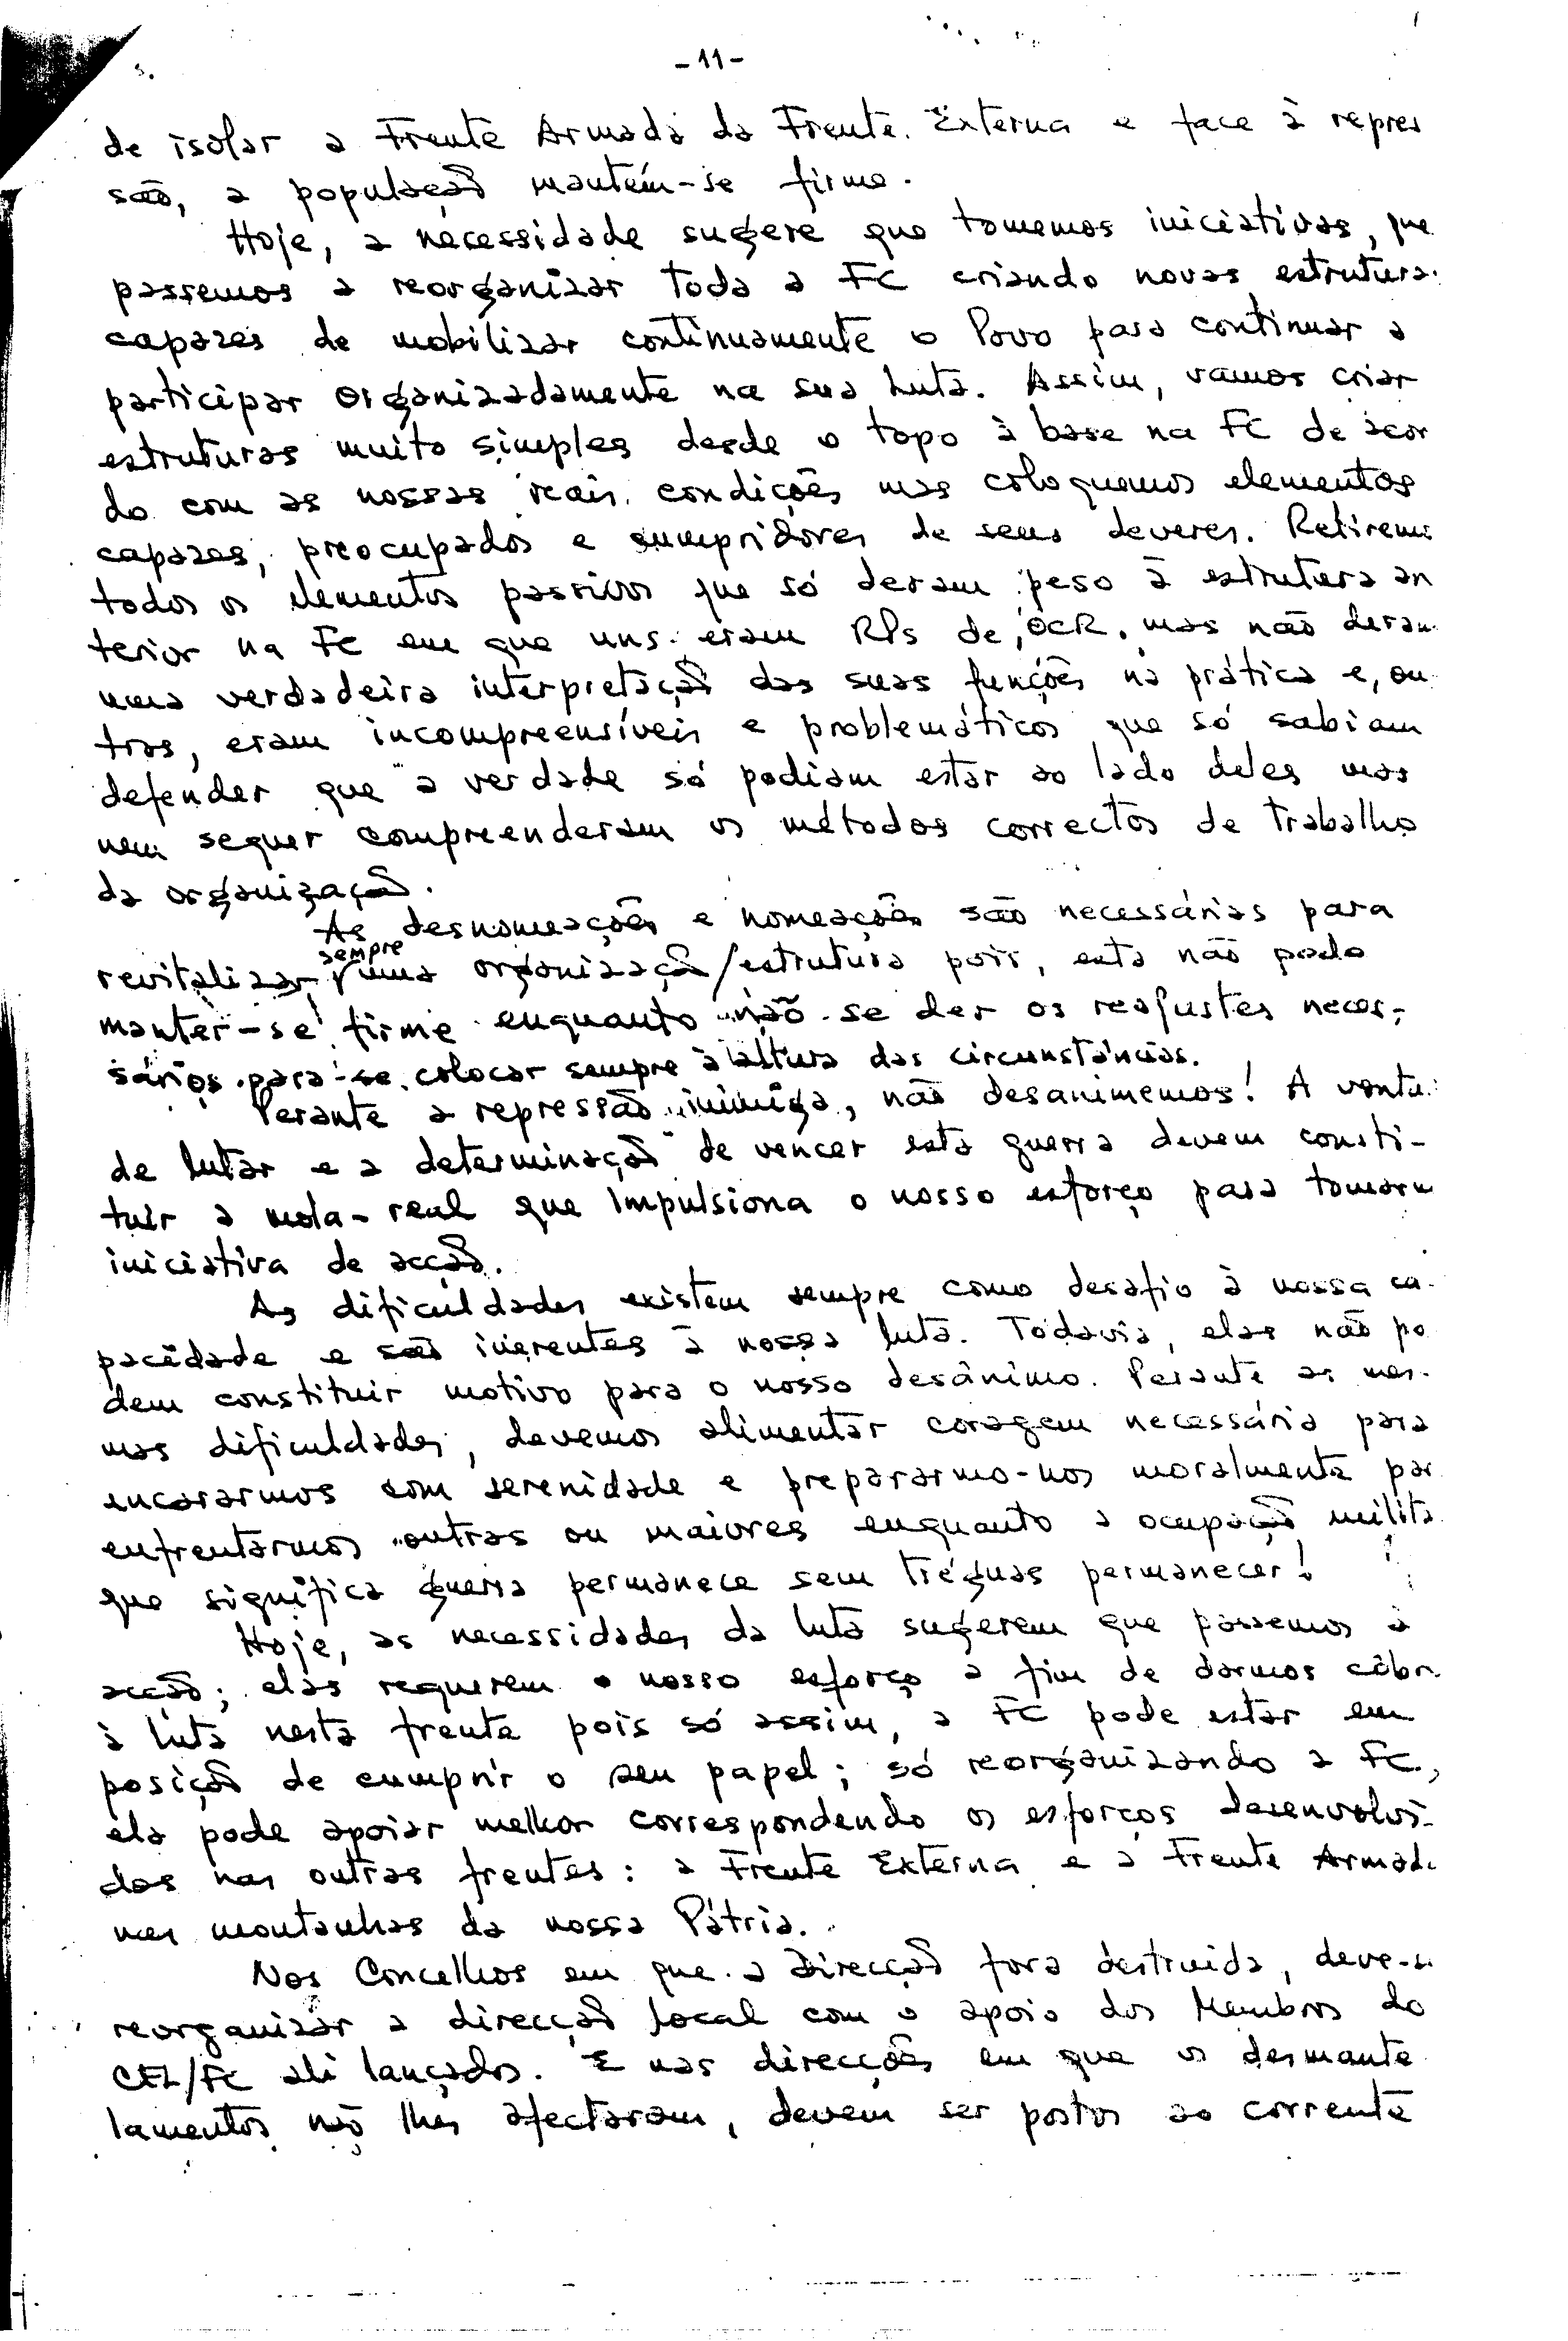 - 11 -
de isolar a Frente Armada da Frente Externa e face à repres
são, a população mantém-se firme.
Hoje, a necessidade sugere que tomemos iniciativas, que
passemos a reorganizar toda a FC criando novas estrutura
capazes de mobilizar continuamente o Povo para continuar a
participar organizadamente na sua luta. Assim, vamos criar
estruturas muito simples desde o topo à base na FC de acor
do com as nossas reais condições mas coloquemos elementos
capazes, preocupados e cumpridores de seus deveres. Retirem
todos os elementos passivos que só deram peso à estrutura an
terior na FC em que uns eram RPs de OCR, mas não deram
uma verdadeira interpretação das suas funções na prática e, ou
tros, eram incompreensíveis e problemáticos que só sabiam
defender que a verdade só podiam estar ao lado deles mas
nem sequer compreenderam os métodos correctos de trabalho
da organização.
As desnomeações e nomeações são necessárias para
revitalizar sempre uma organização/estrutura pois, esta não pode
manter-se firme enquanto não se der os reajustes neces-
sários para se colocar sempre à altura das circunstâncias.
Perante a repressão inimiga, não desanimemos! A vonta
de lutar e a determinação de vencer esta guerra devem consti-
tuir a mola-real que impulsiona o nosso esforço para tomarm
iniciativa de acção.
As dificuldades existem sempre como desafio à nossa ca-
pacidade e são inerentes à nossa luta. Todavia, elas não po
dem constituir motivo para o nosso desânimo. Perante as mes-
mas dificuldades, devemos alimentar coragem necessária para
encararmos com serenidade e prepararmo-nos moralmente par
enfrentarmos outras ou maiores enquanto a ocupação milita
que significa guerra permanece sem tréguas permanecer!
Hoje, as necessidades da luta sugerem que passemos à
acção; elas requerem o nosso esforço a fim de darmos côbr
à luta nesta frente pois só assim, a FC pode estar em
posição de cumprir o seu papel; só reorganizando a FC,
ela pode apoiar melhor correspondendo os esforços desenvolvi-
dos nas outras frentes: a Frente Externa e a Frente Armad
nas montanhas da nossa Pátria.
Nos Concelhos em que a Direcção fora destruída, deve-s
reorganizar a direcção local com o apoio dos Membros do
CEL/FC ali lançados. E nas direcções em que os desmante
lamentos não lhes afectaram, devem ser postos ao corrente